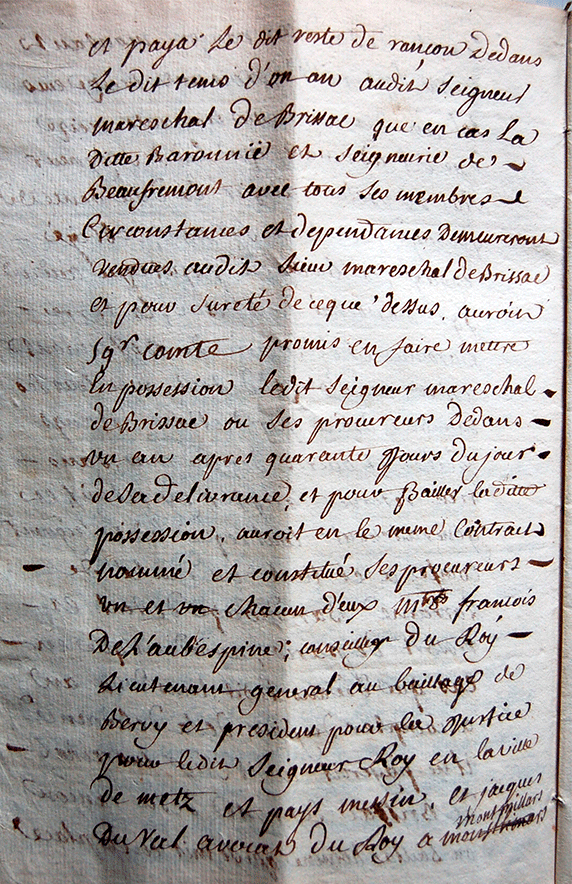 et paya le dit reste de rançon dedans
le dit tems d'un an audit seigneur
mareschal de Brissac que en cas la
ditte Baronnie et seigneurie de
Beaufremont avec tous ses membres
circonstances et dependances demeureront
vendues audit sieur mareschal de Brissac
et pour sureté de ce que dessus, auroit
sgr comte promis en faire mettre
en possession ledit seigneur mareschal
de Brissac ou ses procureurs dedans
un an apres quarante jours du jour
de sa delivrance, et pour Bailler la ditte
possession, auroit en le meme contract
nommé et constitué ses procureurs
un et un chacun d'eux mtres francois
De L'aubespine, conseiller du Roy
Lieutenant general au bailliage de
Berry et president pour la justice
pour ledit Seigneur Roy en la ville
de metz et pays messin et jacques
montpillars
Du Val avocat du Roy a